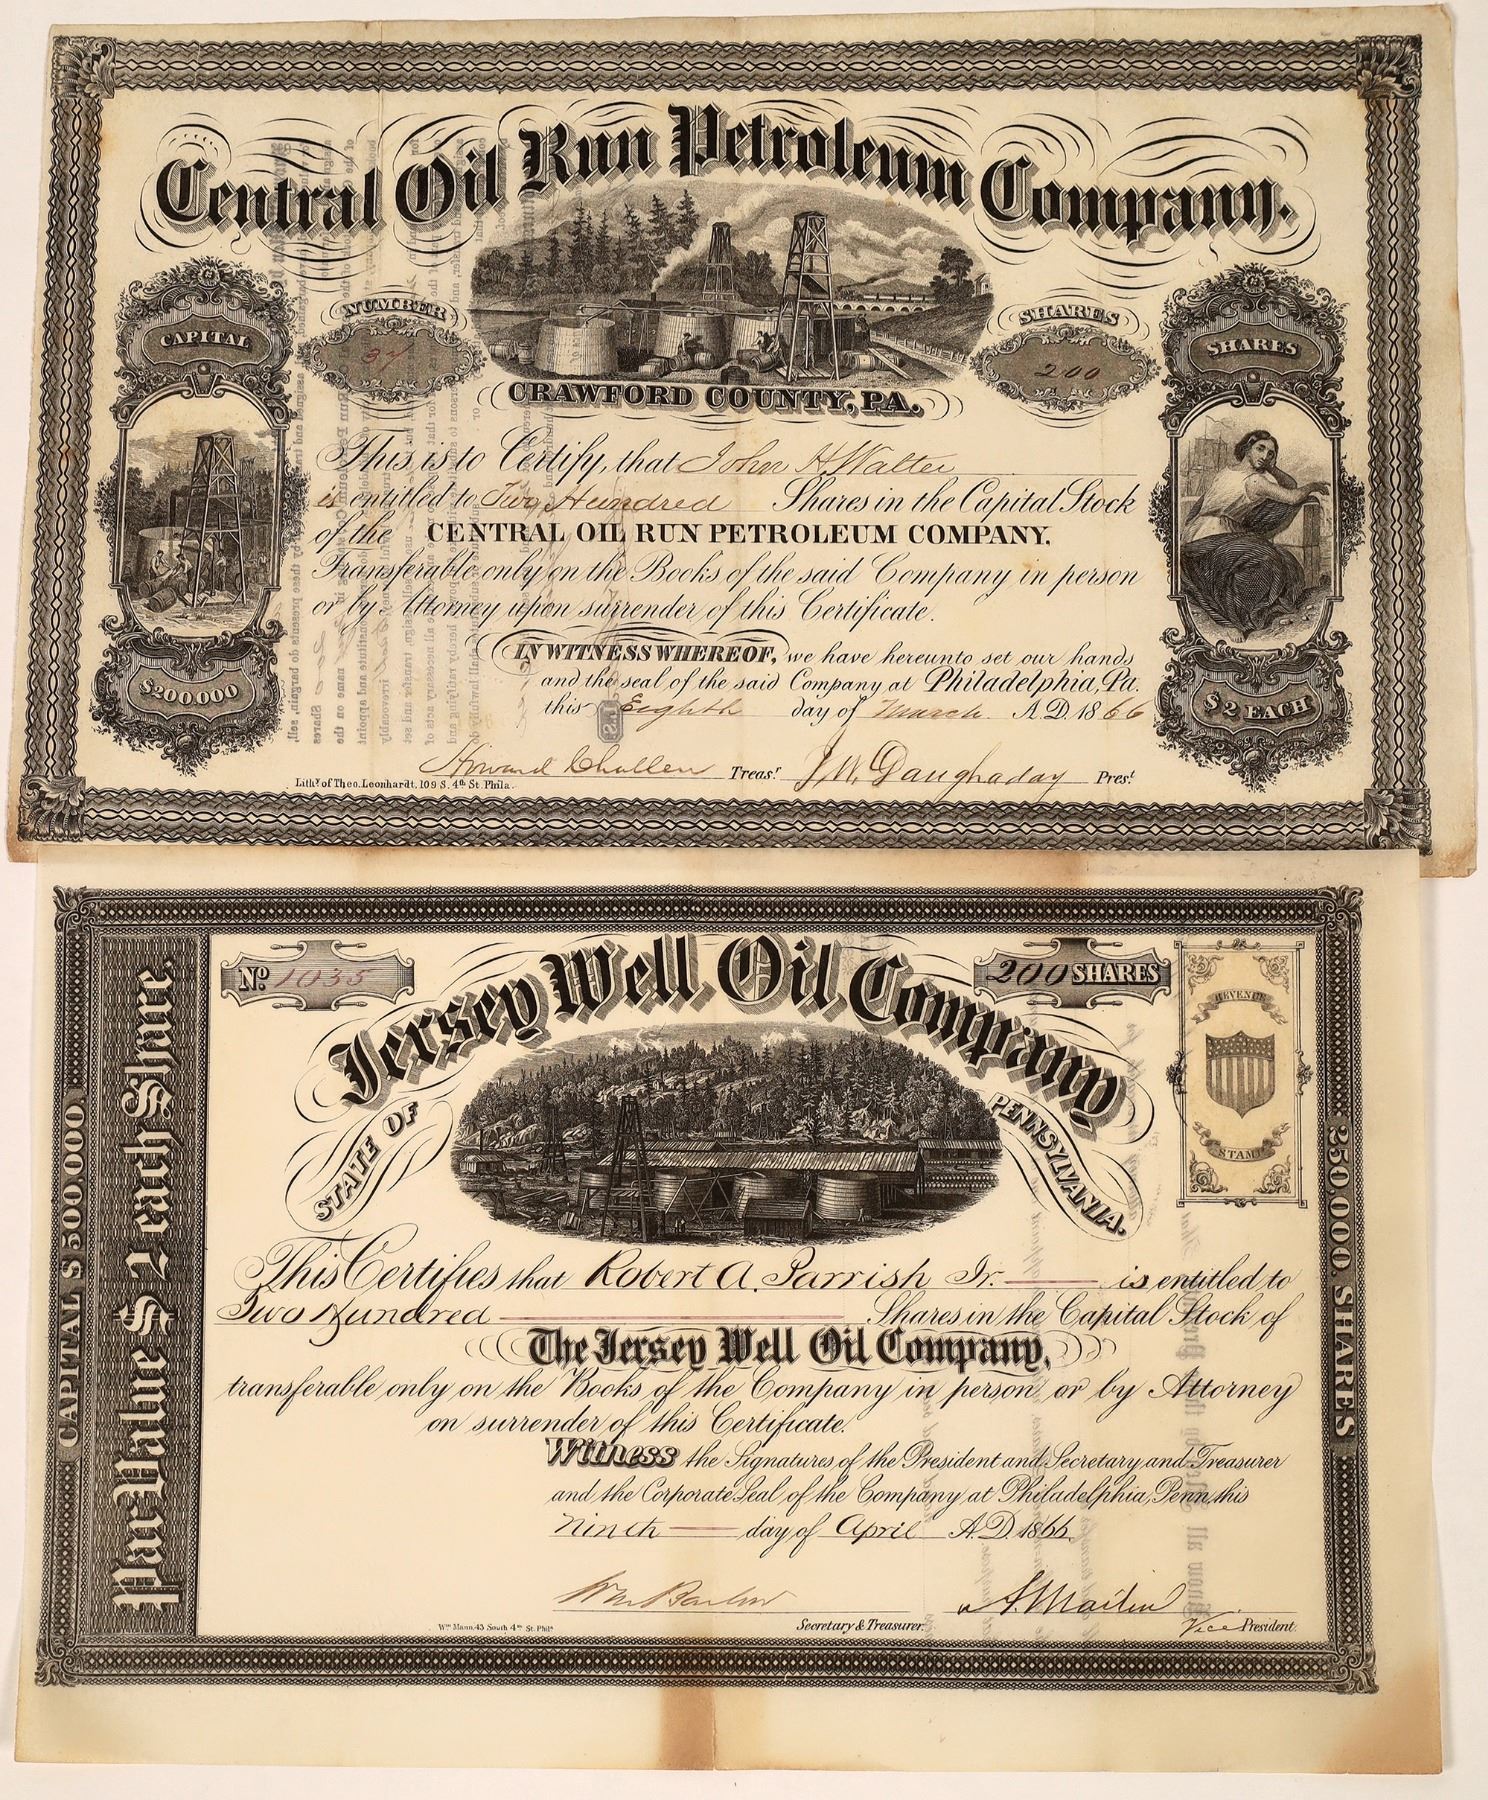 Central Oil Run Petroleum Company.
CAPITAL
NUMBER
37
SHARES
200
SHARES
CRAWFORD COUNTY, PA.
This is to Certify, that John H. Walter
is entitled to Two Hundred Shares in the Capital Stock
of the CENTRAL OIL RUN PETROLEUM COMPANY,
Transferable only on the Books of the said Company in person
or by Attorney upon surrender of this Certificate.
IN WITNESS WHEREOF, we have hereunto set our hands
and the seal of the said Company at Philadelphia, Pa.
this Eighth day of March A.D. 1866
$200,000
$2 EACH
Howard Challen Treasr J. W. Daughaday Prest
Lithy of Theo. Leonhardt, 109 S. 4th St. Phila.
No 1035
Jersey Well Oil Company
200 SHARES
STATE OF PENNSYLVANIA.
REVENUE
STAMP
CAPITAL $500,000.
Par Value $2 each Share.
250,000 SHARES
This Certifies that Robert A. Parrish Jr. is entitled to
Two Hundred Shares in the Capital Stock of
The Jersey Well Oil Company,
transferable only on the Books of the Company in person or by Attorney
on surrender of this Certificate.
Witness the Signatures of the President and Secretary and Treasurer
and the Corporate Seal of the Company at Philadelphia, Penn. this
Ninth day of April A.D. 1866
Secretary & Treasurer.
Vice President
Wm Mann, 43 South 4th St. Phila